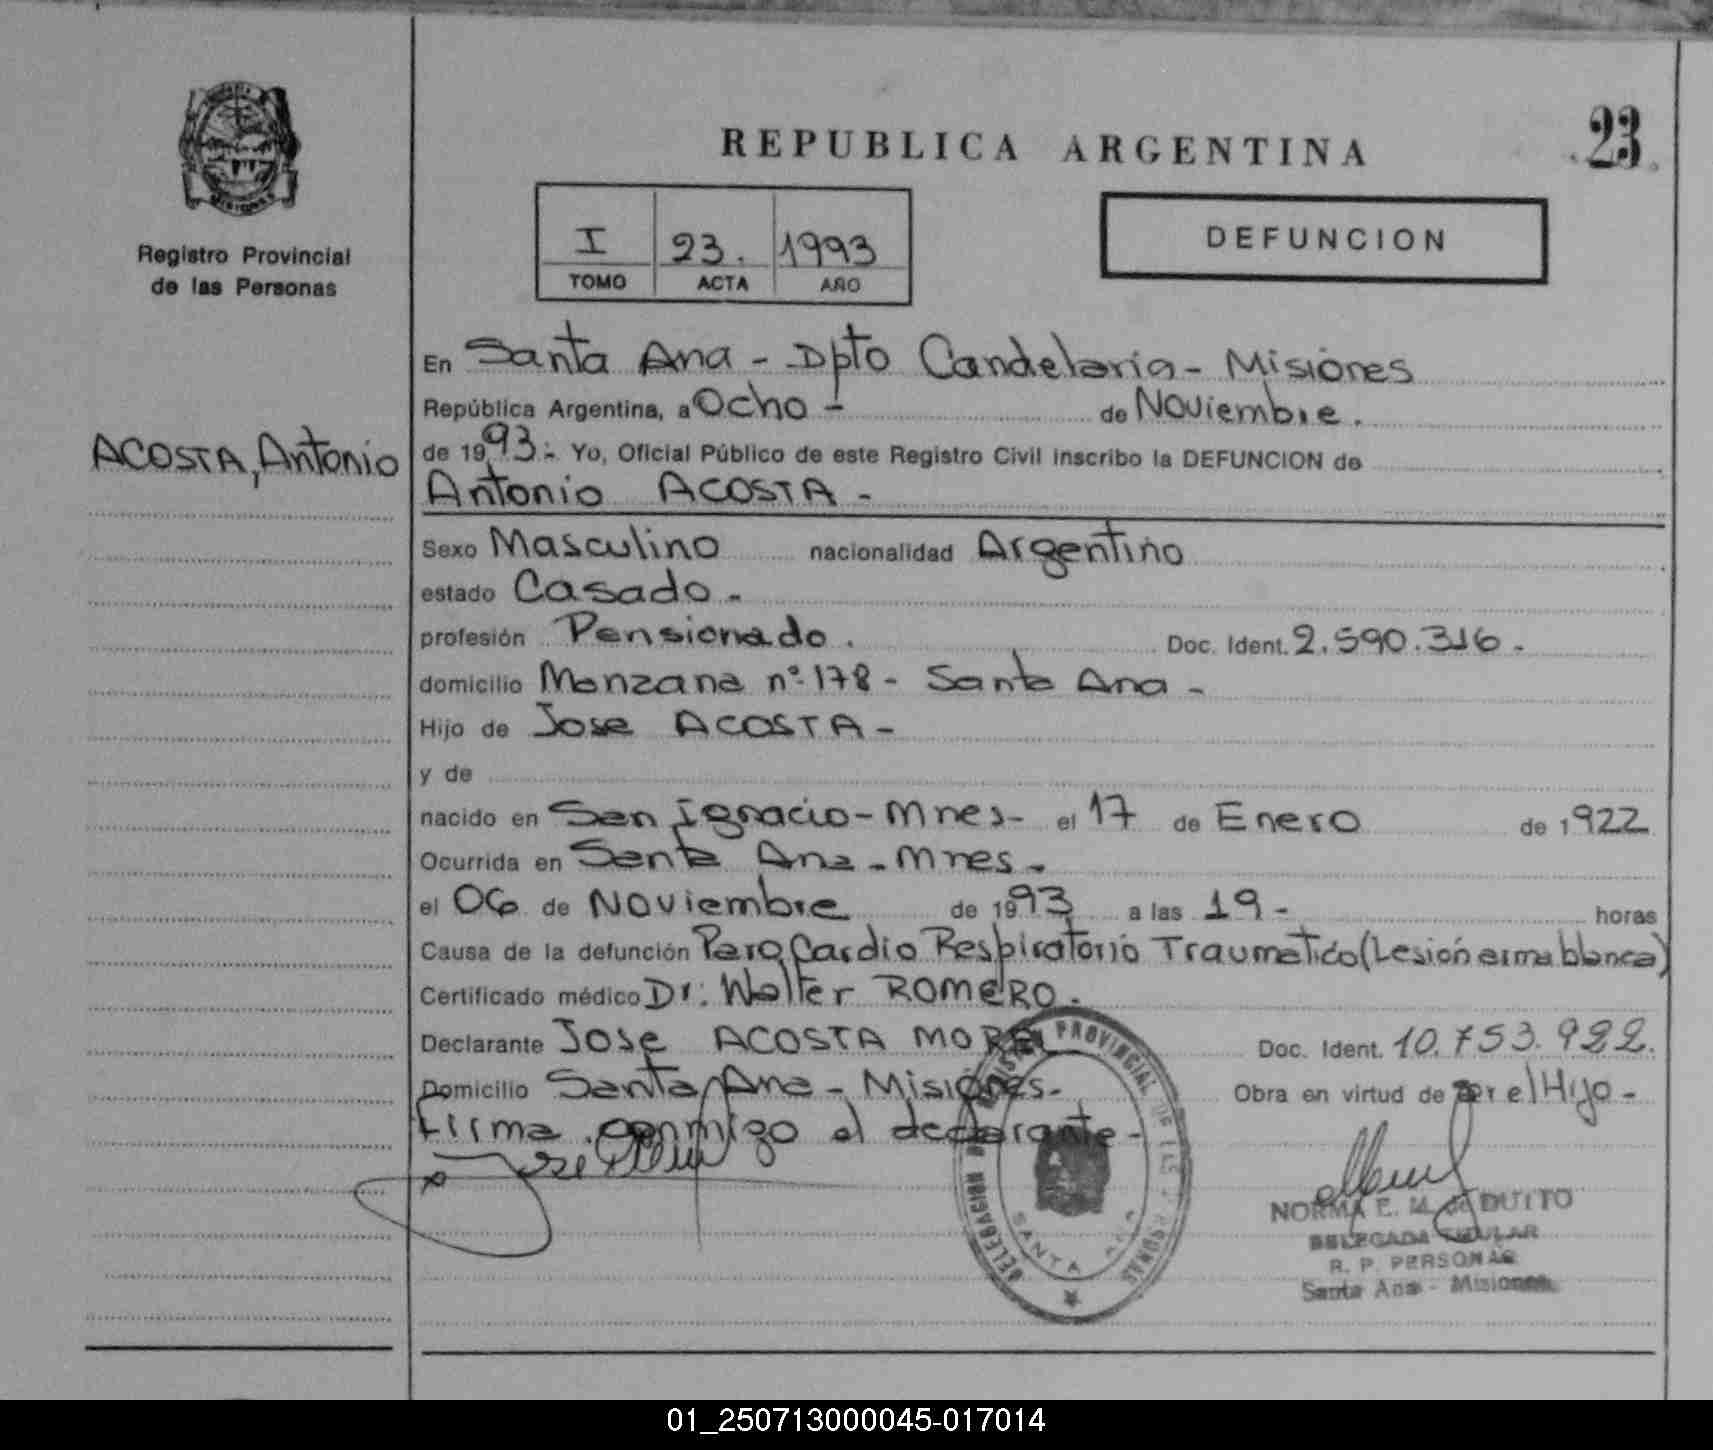 REPUBLICA ARGENTINA
23
MISIONES
Registro Provincial
de las Personas
I 23. 1993
TOMO ACTA AÑO
DEFUNCION
En Santa Ana - Dpto Candelaria - Misiones
República Argentina, a Ocho - de Noviembre.
ACOSTA, Antonio
de 1993 - Yo, Oficial Público de este Registro Civil inscribo la DEFUNCION de
Antonio ACOSTA -
Sexo Masculino nacionalidad Argentino
estado Casado -
profesión Pensionado. Doc. Ident. 2.590.316 -
domicilio Manzana nº 178 - Santa Ana -
Hijo de Jose ACOSTA -
y de
nacido en San Ignacio - Mnes - el 17 de Enero de 1922
Ocurrida en Santa Ana - Mnes -
el 06 de Noviembre de 1993 a las 19 - horas
Causa de la defunción Paro Cardio Respiratorio Traumatico (Lesión arma blanca)
Certificado médico Dr: Walter ROMERO.
Declarante Jose ACOSTA MOREL Doc. Ident. 10.753.922.
Domicilio Santa Ana - Misiones - Obra en virtud de ser el Hijo -
Firma conmigo el declarante -
DELEGACION PROVINCIAL DE LAS PERSONAS
SANTA ANA
NORMA E. M. de DUTTO
DELEGADA TITULAR
R. P. PERSONAS
Santa Ana - Misiones
01_250713000045-017014